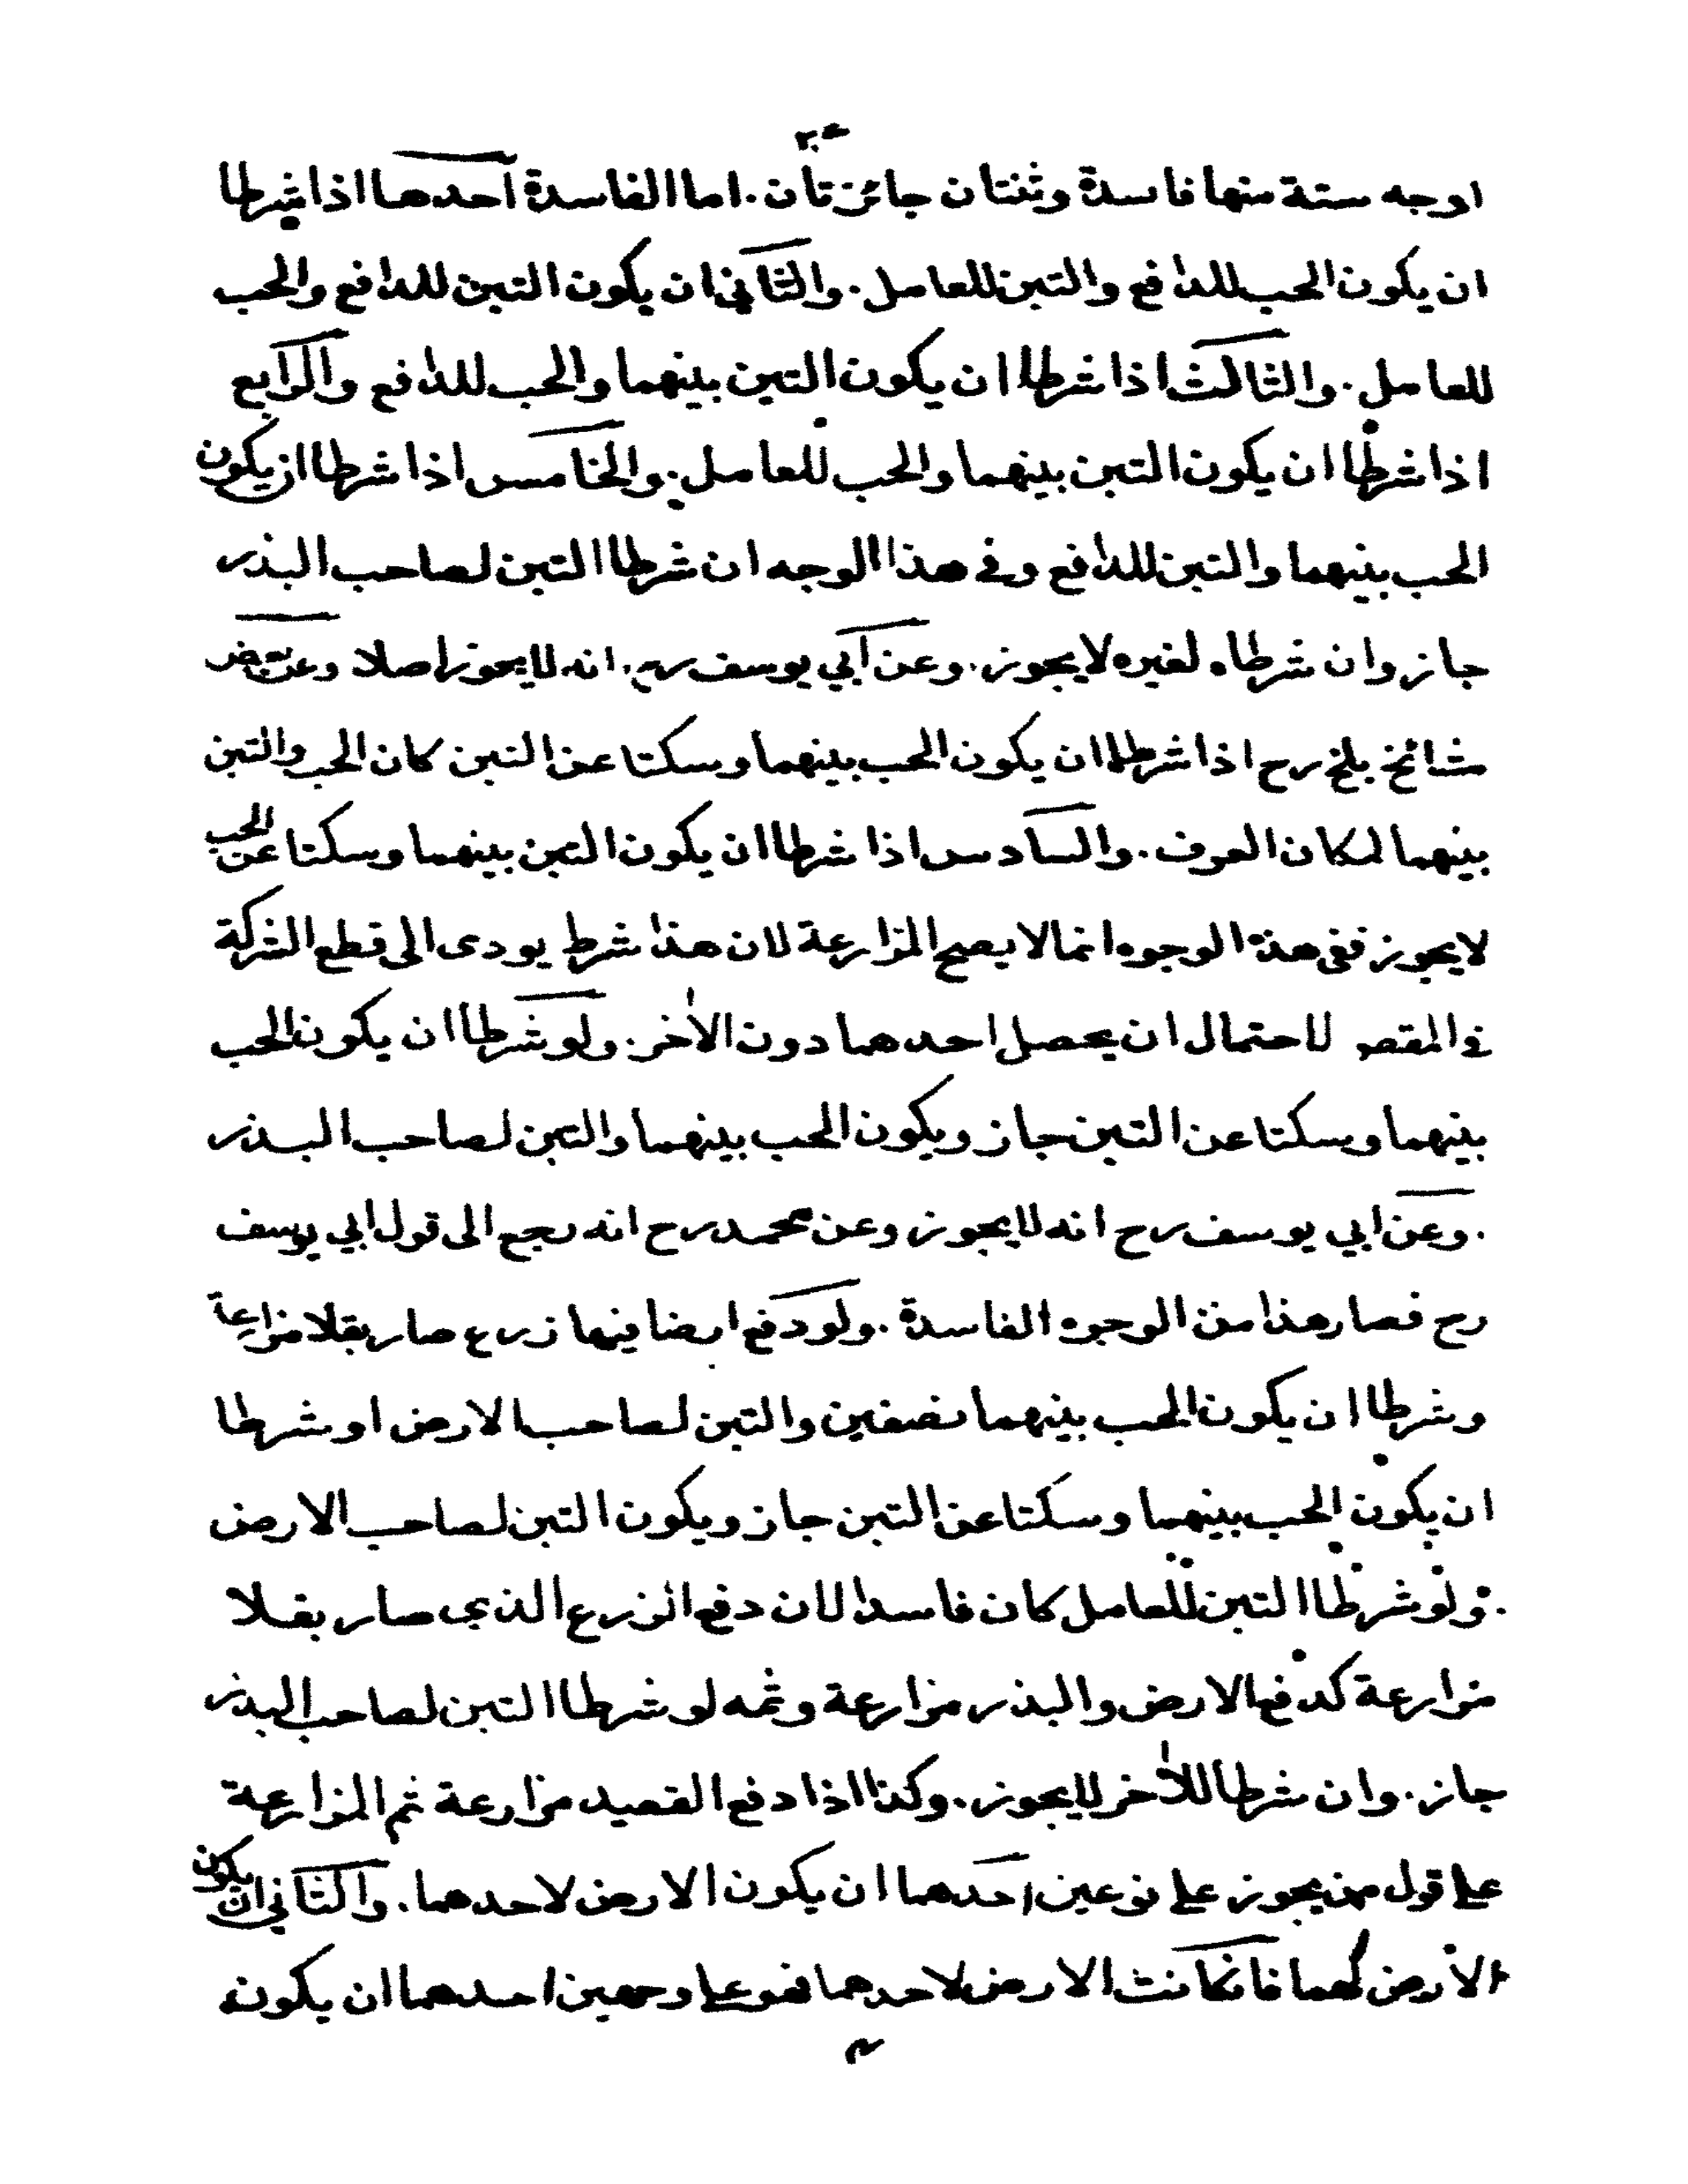 اوجه ستة منها فاسدة وثنتان جائزتان . اما الفاسدة احدها اذا شرطا
ان يكون الحب للدافع والتبن للعامل . والثاني ان يكون التبن للدافع والحب
للعامل . والثالث اذا شرطا ان يكون التبن بينهما والحب للدافع والرابع
اذا شرطا ان يكون التبن بينهما والحب للعامل . والخامس اذا شرطا ان يكون
الحب بينهما والتبن للدافع وفي هذا الوجه ان شرطا التبن لصاحب البذر
جاز وان شرطاه لغيره لا يجوز . وعن ابي يوسف رح . انه لا يجوز اصلا وعن بعض
مشائخ بلخ رح اذا شرطا ان يكون الحب بينهما وسكتا عن التبن كان الحب والتبن
بينهما لمكان العرف . والسادس اذا شرطا ان يكون التبن بينهما وسكتا عن الحب
لا يجوز ففي هذه الوجوه انما لا يصح المزارعة لان هذا شرط يودى الى قطع الشركة
في المقصو لاحتمال ان يحصل احدهما دون الاخر . ولو شرطا ان يكون الحب
بينهما وسكتا عن التبن جاز ويكون الحب بينهما والتبن لصاحب البذر
. وعن ابي يوسف رح انه لا يجوز وعن محمد رح انه رجع الى قول ابي يوسف
رح فصار هذا من الوجوه الفاسدة . ولو دفع ارضا فيها زرع صار بقلا مزارعة
وشرطا ان يكون الحب بينهما نصفين والتبن لصاحب الارض او شرطا
ان يكون الحب بينهما وسكتا عن التبن جاز ويكون التبن لصاحب الارض
. ولو شرطا التبن للعامل كان فاسدا لان دفع الزرع الذي صار بقلا
مزارعة كدفع الارض والبذر مزارعة وثمه لو شرطا التبن لصاحب البذر
جاز . وان شرطا للاخر لا يجوز . وكذا اذا دفع القصيد مزارعة ثم المزارعة
على قول من يجوز على نوعين احدهما ان يكون الارض لاحدهما . والثاني ان يكون
الارض لهما فان كانت الارض لاحدهما فهو على وجهين احدهما ان يكون